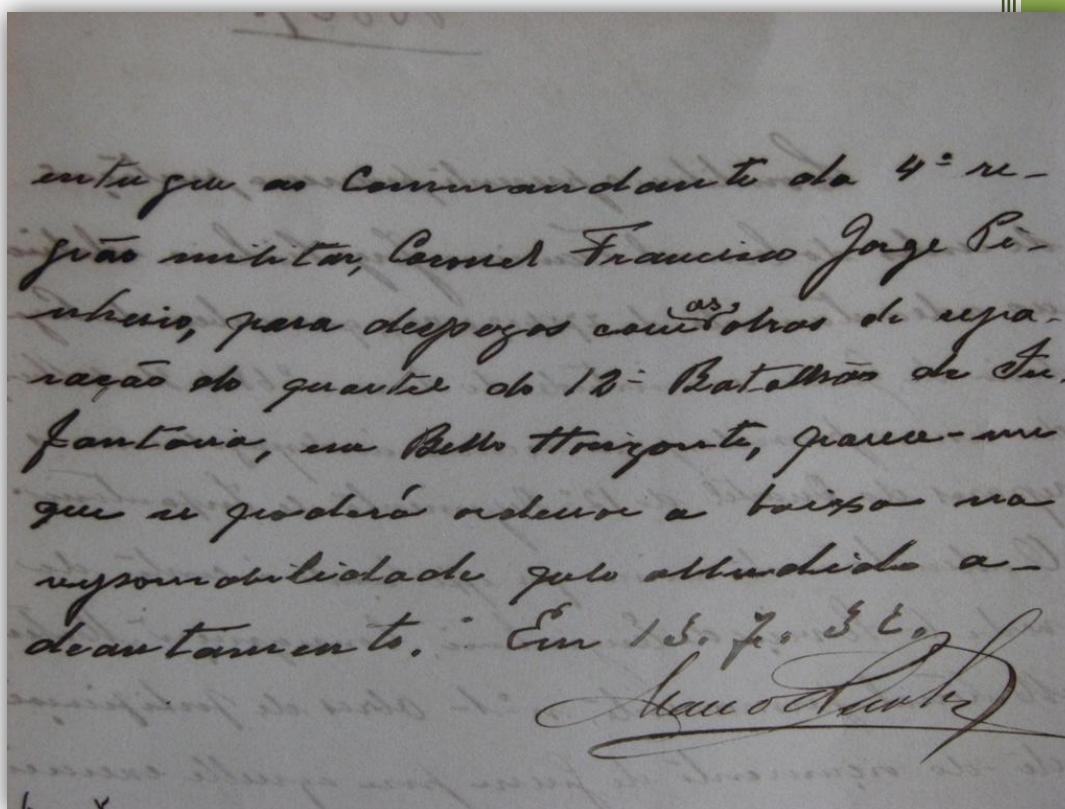 entregue ao Commandante da 4ª re-
gião militar, Coronel Francisco Jorge Pi-
nheiro, para despezas com as obras de repa-
ração do quartel do 12º Batalhão de In-
fantaria, em Bello Horizonte, parece-me
que se poderá ordenar a baixa na
responsabilidade pelo alludido a-
deantamento. Em